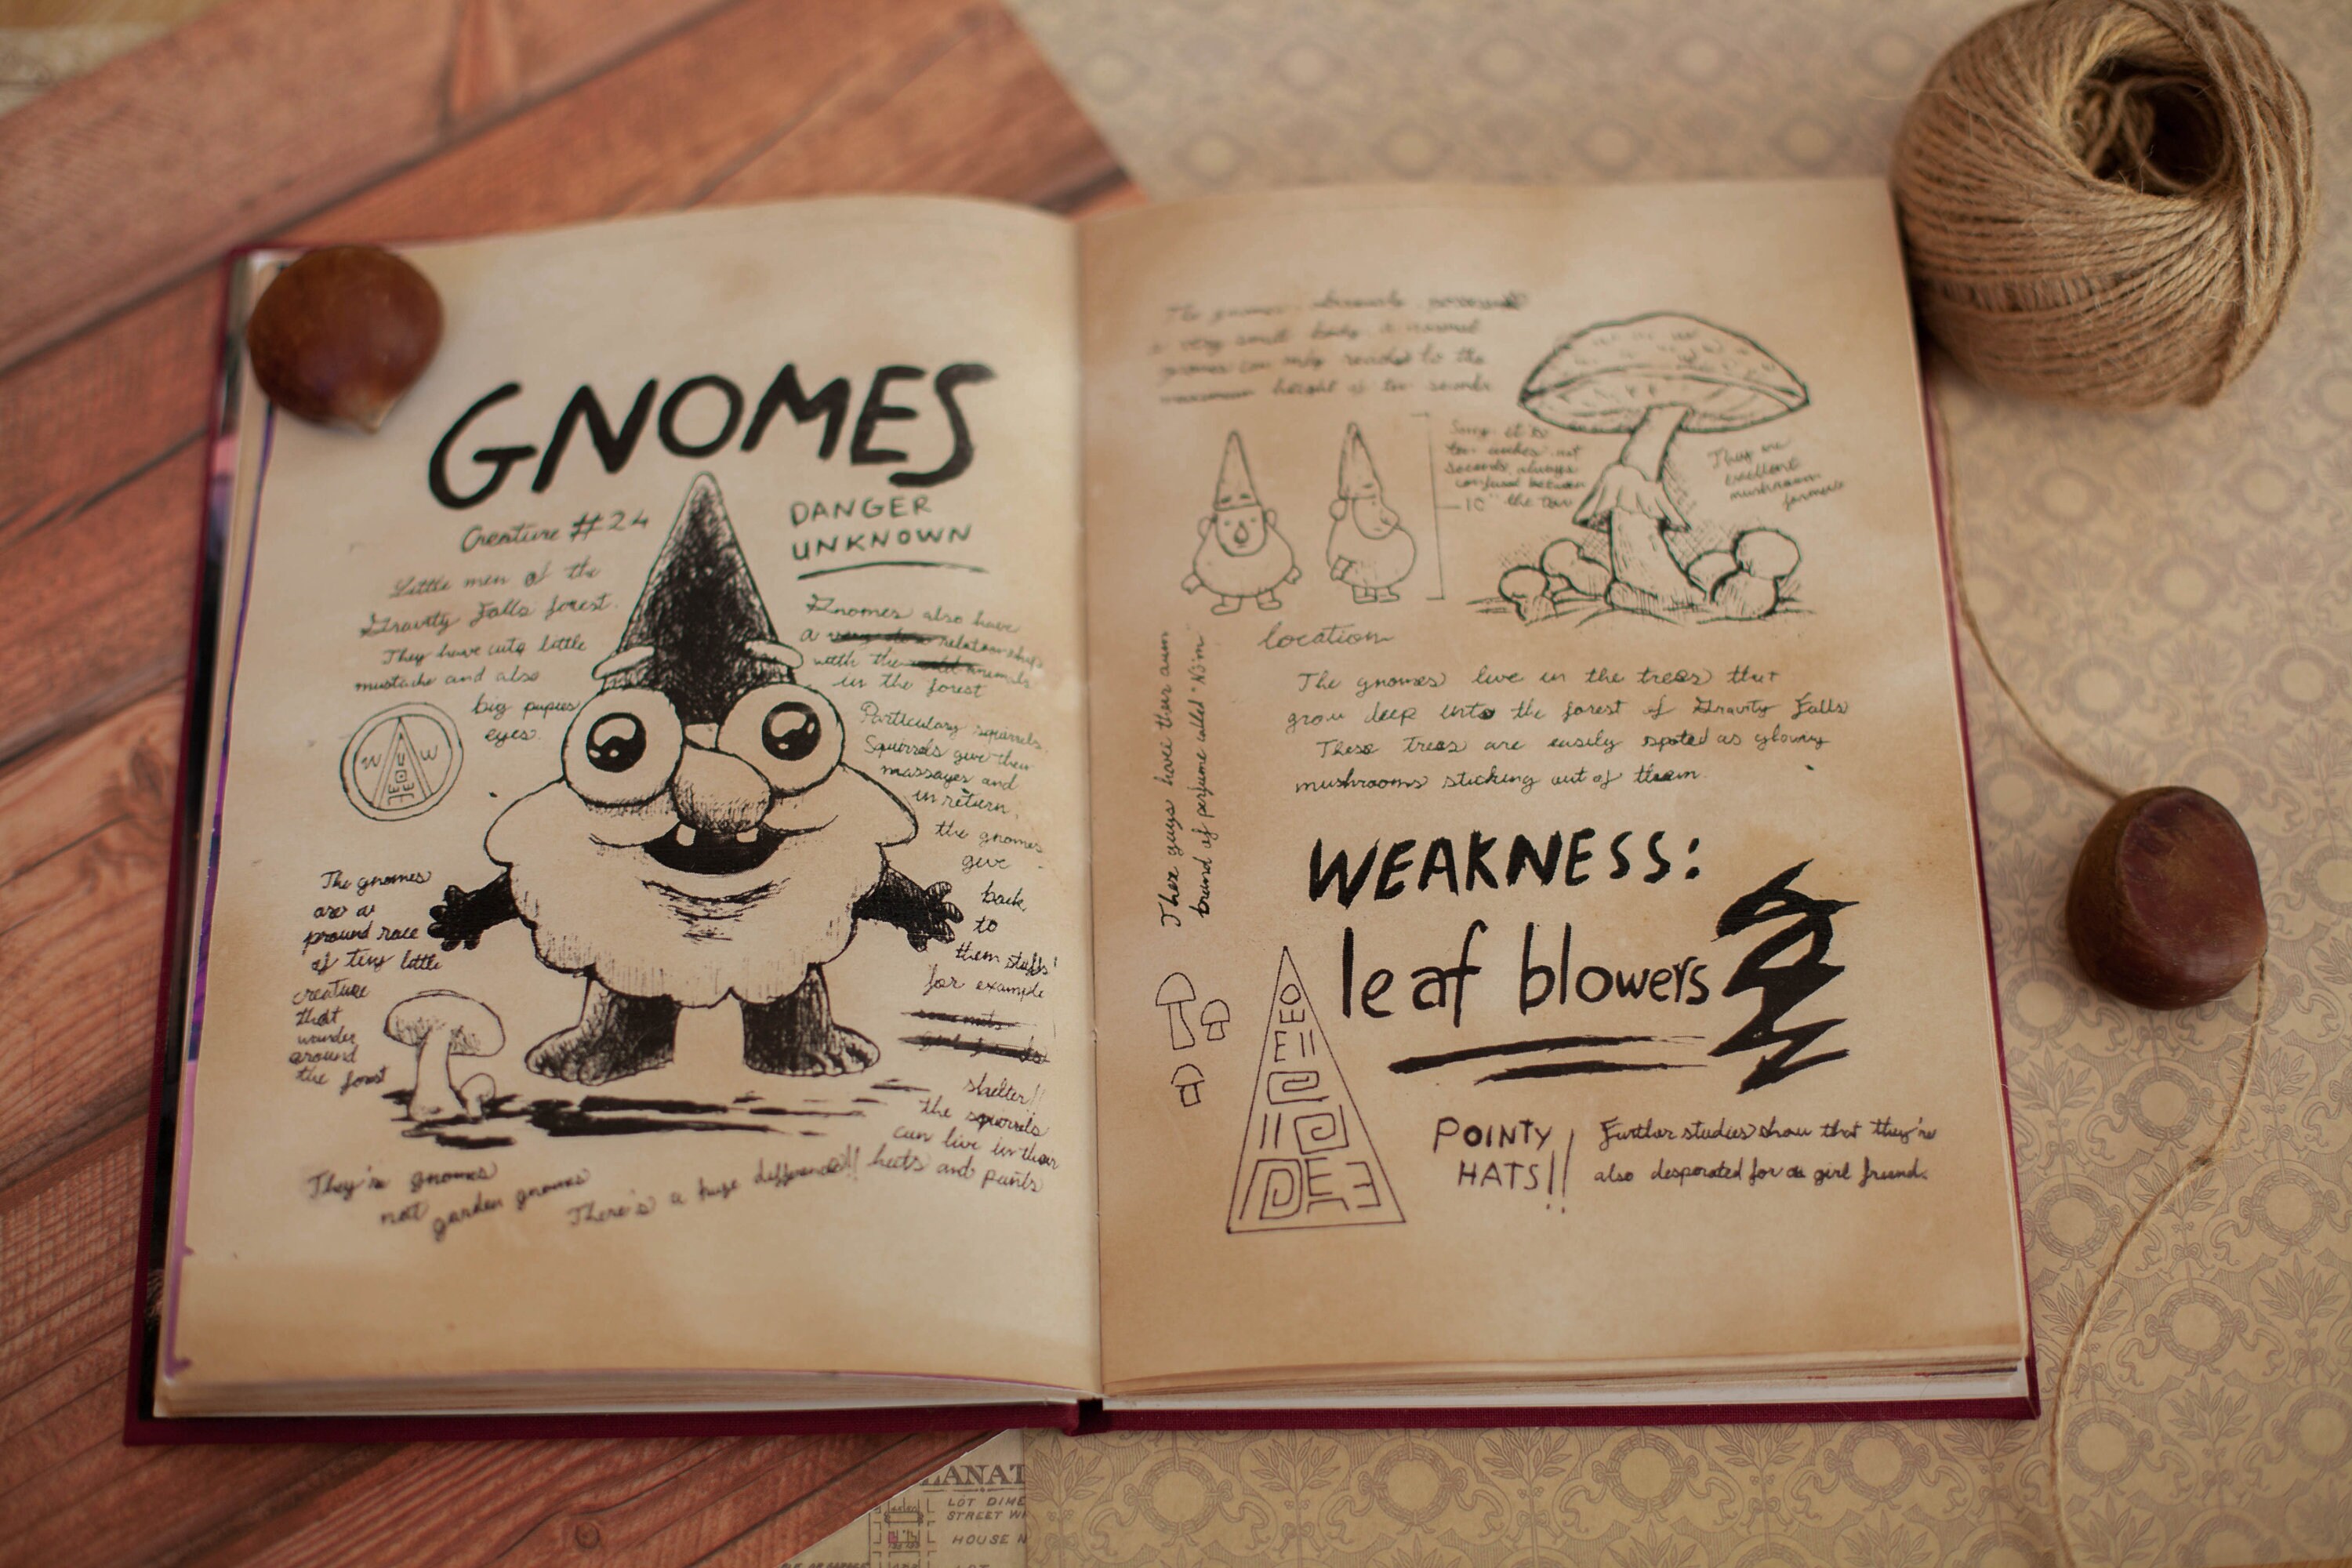 GNOMES
Creature #24
DANGER
UNKNOWN
Little men of the
Gravity Falls forest.
They have cute little
mustache and also
big pupies
eyes.
The gnomes
are a
pround race
of tiny little
creature
that
wander
around
the forest
Gnomes also have
a very close relationships
with the wild animals
in the forest
Particulary squirrels.
Squirrels give them
massages and
in return,
the gnomes
give
back
to
them stuffs
for example
shelter!!
the squirrels
can live in their
hats and pants
They're gnomes
not garden gnomes
There's a huge difference!!
The gnomes
a very small body, a normal
gnomes can only reached to the
maximum height of ten seconds
Sorry it is
ten inches not
seconds, always
confused between
10" the two
They are
excellent
mushroom
farmers
location
The gnomes live in the trees that
grow deep into the forest of Gravity Falls
These trees are easily spoted as glowing
mushrooms sticking out of them.
These guys have their own
brand of perfume called "Nom"
WEAKNESS:
leaf blowers
POINTY
HATS!!
Further studies show that they're
also desporated for a girl friend.
LOT DIME
STREET WI
HOUSE N